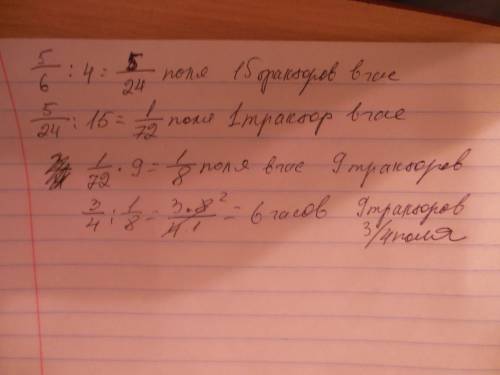 5/6 : 4 = 5/24 поля 15 тракторов в час
5/24 : 15 = 1/72 поля 1 трактор в час
1/72 · 9 = 1/8 поля в час 9 тракторов
3/4 : 1/8 = 3·8²/4 1 = 6 часов 9 тракторов
3/4 поля